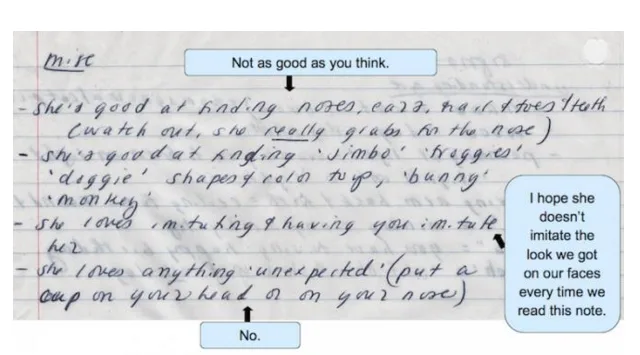 misc
Not as good as you think.
- she's good at finding noses, ears, hair & toes, teeth
(watch out, she really grabs for the nose)
- she's good at finding 'Jimbo' 'froggies'
'doggie' shapes & color top, 'bunny'
'monkey'
- she loves imitating & having you imitate
her
- she loves anything 'unexpected' (put a
cup on your head or on your nose)
I hope she
doesn't
imitate the
look we got
on our faces
every time we
read this note.
No.